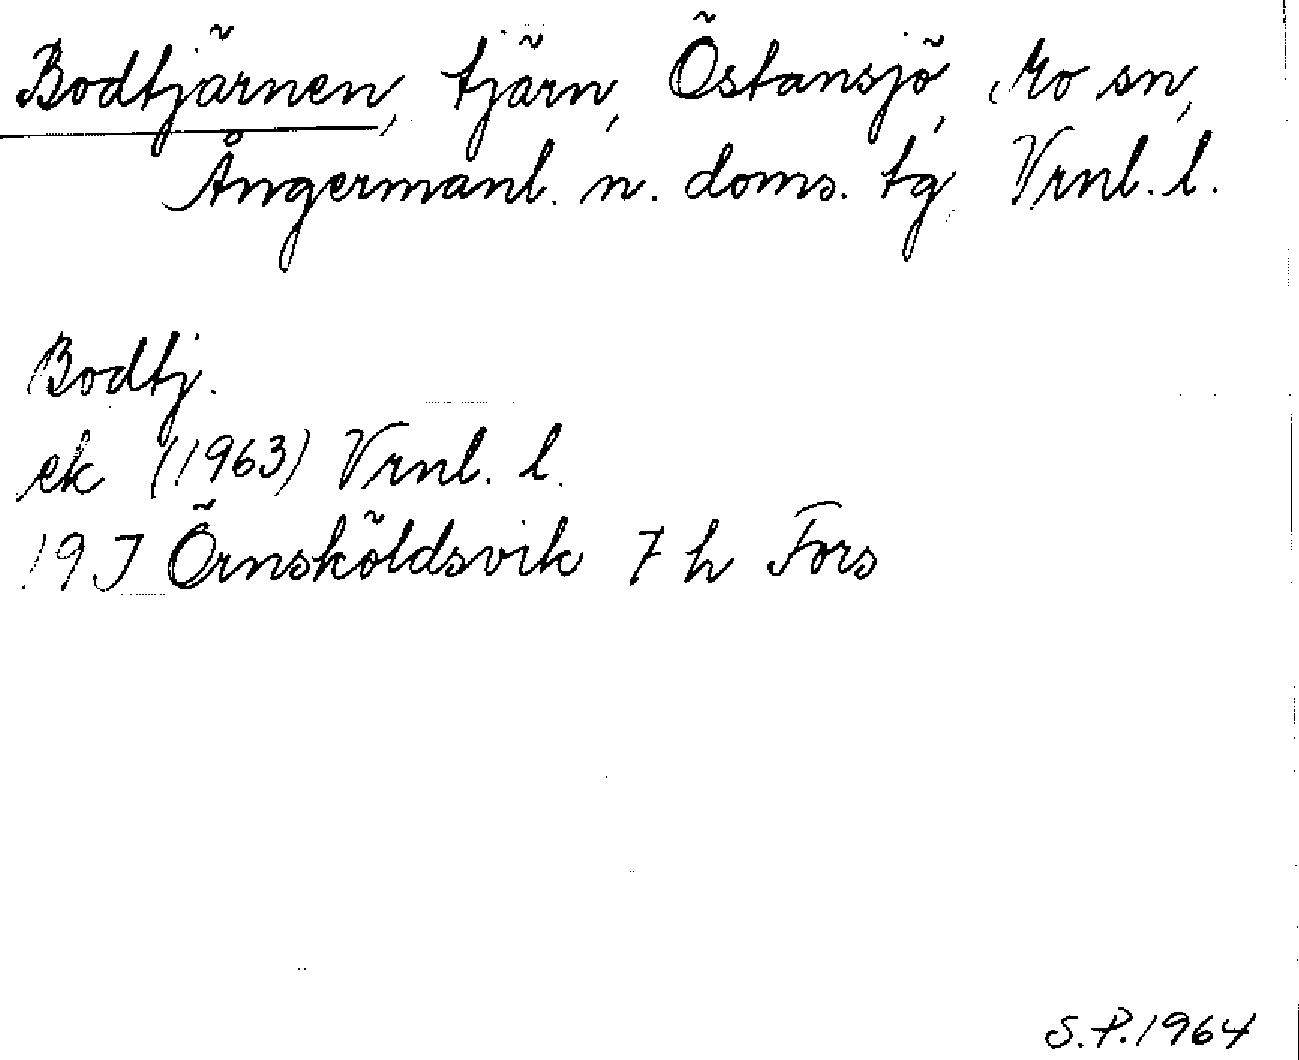 Bodtjärnen, tjärn, Östansjö, Mo sn,
Ångermanl. n. doms. tg, Vrnl. l.
Bodtj.
ek (1963) Vrnl. l.
19 J Örnsköldsvik 7 h Fors
S.P. 1964